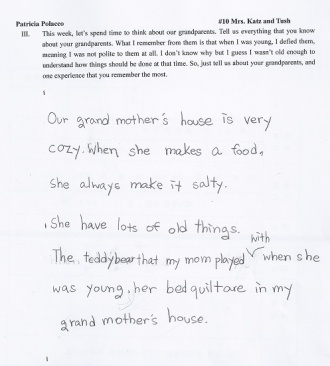 Patricia Polacco #10 Mrs. Katz and Tush
III. This week, let's spend time to think about our grandparents. Tell us everything that you know
about your grandparents. What I remember from them is that when I was young, I defied them,
meaning I was not polite to them at all. I don't know why but I guess I wasn't old enough to
understand how things should be done at that time. So, just tell us about your grandparents, and
one experience that you remember the most.
Our grand mother's house is very
cozy. When she makes a food,
she always make it salty.
She have lots of old things.
with
The teddybear that my mom played when she
was young, her bed quilt are in my
grand mother's house.